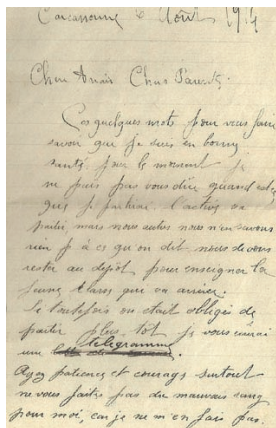 Carcassonne le Août 1914
Cher Anaïs Chers Parents
Ces quelques mots pour vous faire
savoir que je suis en bonne
santé pour le moment je
ne puis pas vous dire quand est ce
que je partirai l'active va
partir, mais nous autres nous n'en savons
rien à ce qu'on dit nous devons
rester au dépôt pour enseigner la
jeune classe que va arriver.
Si toutefois on était obligés de
partir plus tôt je vous enverrai
une télégramme.
Ayez patience et courage surtout
ne vous faites pas du mauvais sang
pour moi, car je ne m'en fais pas.